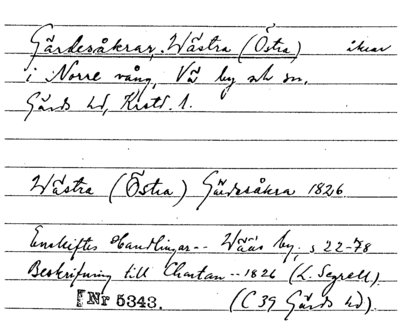 Gärdesåkrar, Wästra (Östra) åkrar
i Norre vång, Vä by och sn,
Gärds hd, Krstd. l.
Wästra (Östra) Gärdesåkra 1826
Enskiftes Handlingar -- Wääs by. s 22-78
Beskrifning till Chartan -- 1826 (L. Segrell)
Nr 5343. (C 39 Gärds hd).